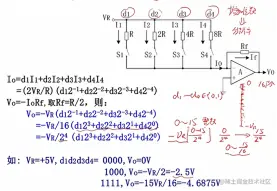 VR d1 d2 d3 d4
I1 I2 I3 I4
R 2R 4R 8R
S1 S2 S3 S4
Rf
If
Io
A
Vo
Io=d1I1+d2I2+d3I3+d4I4
=(2VR/R)(d12⁻¹+d22⁻²+d32⁻³+d42⁻⁴)
Vo=-IoRf,取Rf=R/2, 则:
Vo=-VR(d12⁻¹+d22⁻²+d32⁻³+d42⁻⁴)
=-VR/16(d12³+d22²+d32¹+d42⁰)
=-VR/2⁴ (d12³+d22²+d32¹+d42⁰)
0~15
如: VR=+5V, d1d2d3d4= 0000,Vo=0V
1000,Vo=-VR/2=-2.5V
1111,Vo=-15VR/16=-4.6875V
@稀土掘金技术社区